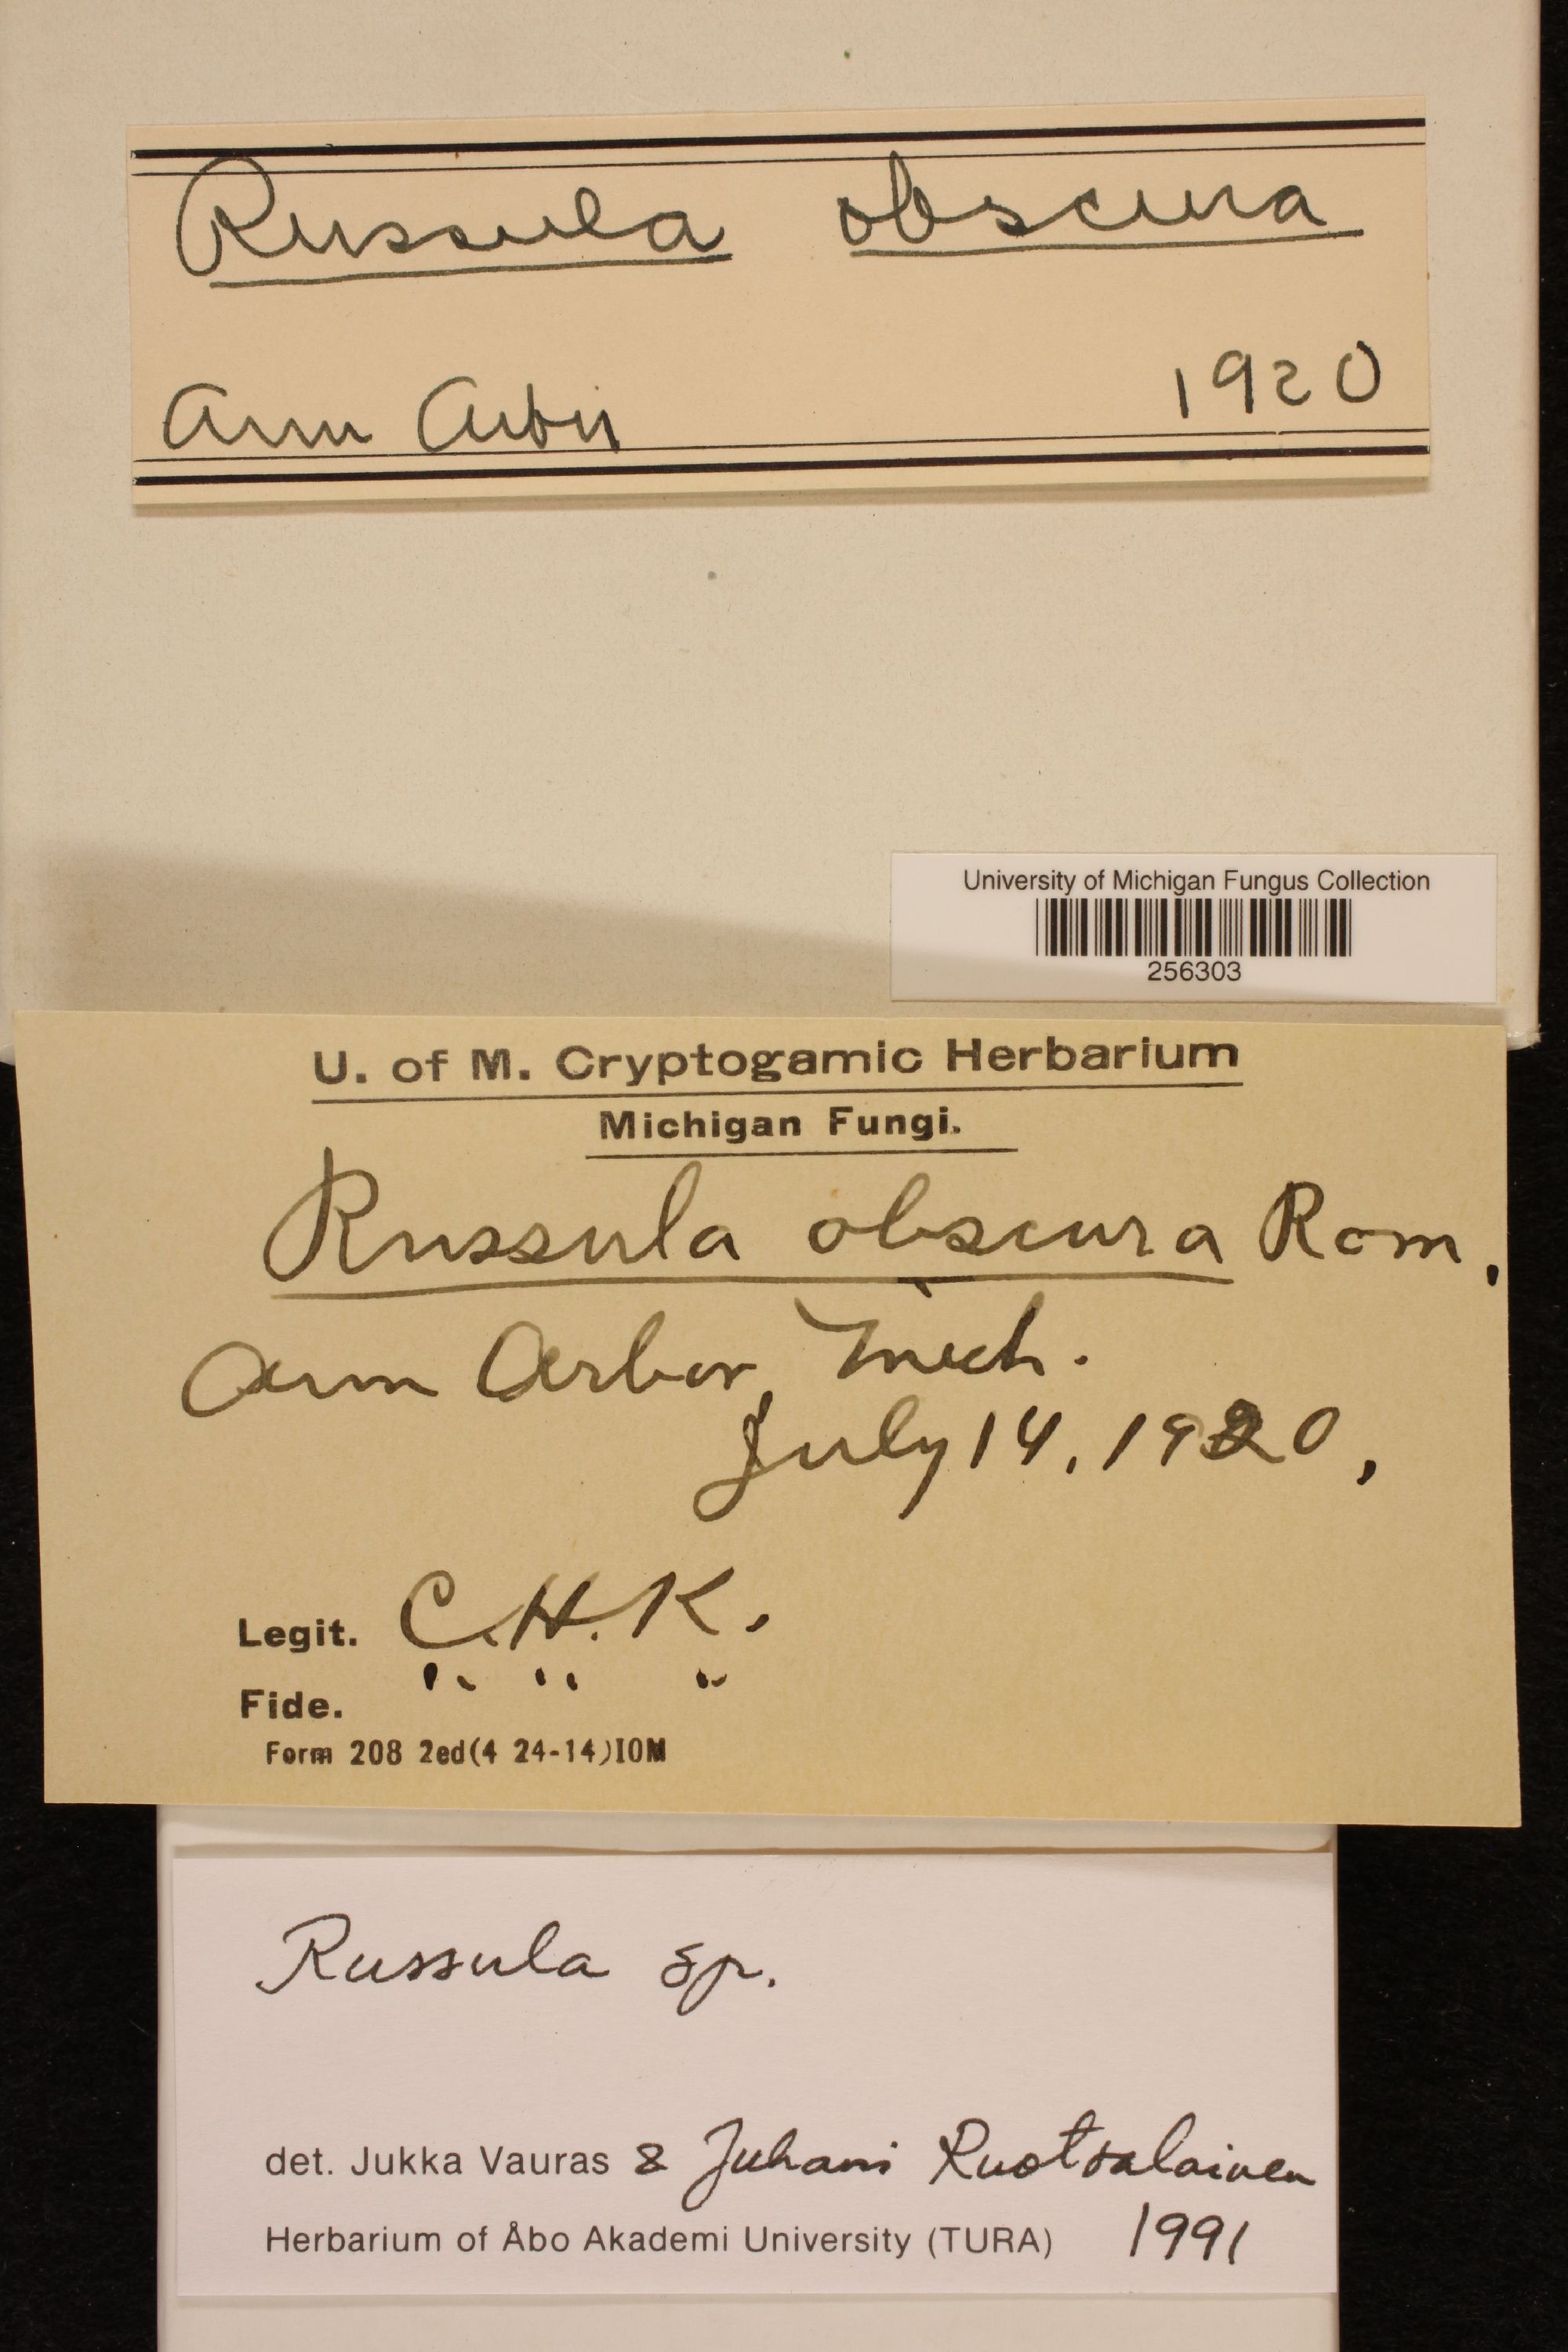 Russula obscura
Ann Arbor 1920
University of Michigan Fungus Collection
256303
U. of M. Cryptogamic Herbarium
Michigan Fungi.
Russula obscura Rom.
Ann Arbor, Mich.
July 14, 1920,
Legit. C.H.K.
Fide. " " "
Form 208 2ed(4 24-14)10M
Russula sp.
det. Jukka Vauras & Juhani Ruotsalainen
Herbarium of Åbo Akademi University (TURA) 1991